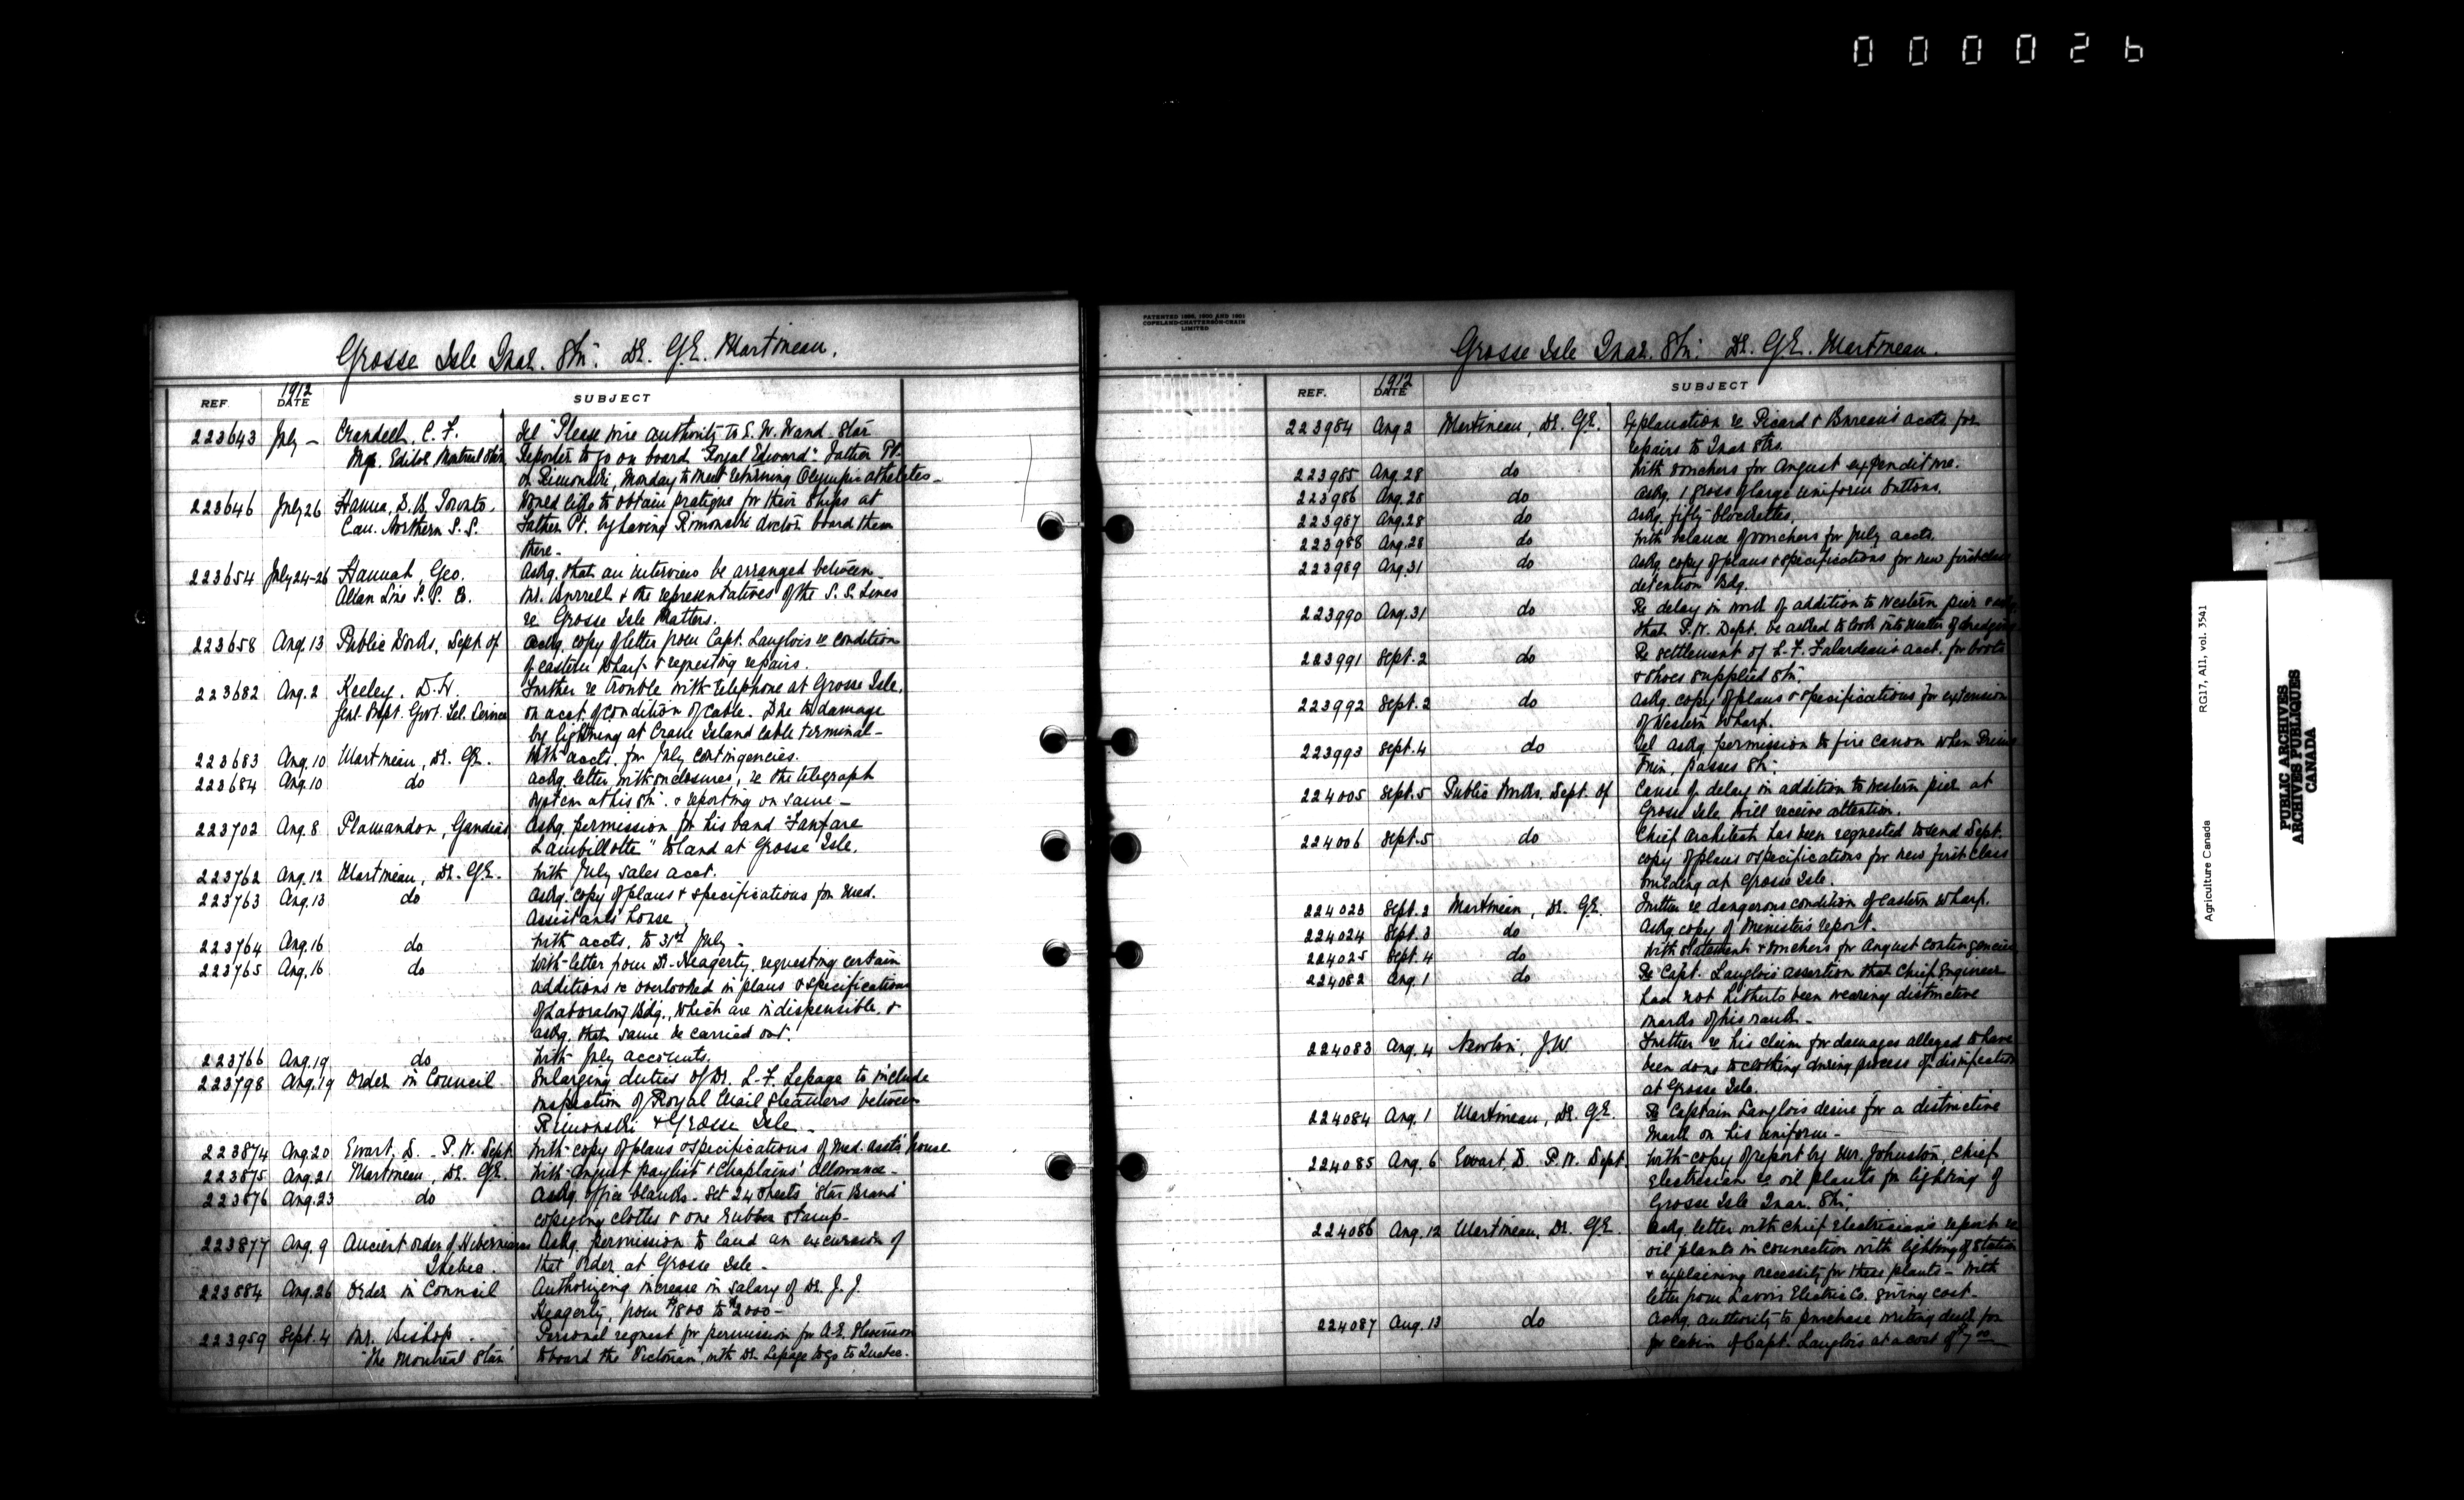 000026
Grosse Isle Quar. Stn. Dr. G.E. Martineau.
REF. 1912 DATE SUBJECT
223643 July — Crandell, C. F. Tel "Please wire authority to E. W. Wand Star
Mgr. Editor Montreal Star Reporter to go on board "Royal Edward" Father Pt.
or Rimouski, Monday to meet returning Olympic athletes —
223646 July 26 Hanna, D. B. Toronto. Would like to obtain pratique for their ships at
Can. Northern S. S. Father Pt. by having Rimouski doctor board them
there —
223654 July 24-26 Hannah, Geo. Askg. that an interview be arranged between
Allan Line S. S. Co. Mr. Burrell & the representatives of the S. S. Lines
re Grosse Isle Matters.
223658 Aug. 13 Public Works, Dept of Ackg. copy of letter from Capt. Langlois re condition
of eastern wharf & requesting repairs.
223682 Aug. 2 Keeley, D. H. Further re trouble with telephone at Grosse Isle,
Genl. Supt. Govt. Tel. Service on acct. of condition of cable. Due to damage
by lightning at Crane Island cable terminal —
223683 Aug. 10 Martineau, Dr. G.E. With accts. for July contingencies.
223684 Aug. 10 do Ackg letter with enclosures, re the telegraph
system at his Stn. & reporting on same —
223702 Aug. 8 Plamandon, Gaudias Askg. permission for his band "Fanfare
Lambillotte" to land at Grosse Isle.
223762 Aug. 12 Martineau, Dr. G.E. With July sales acct.
223763 Aug. 13 do Askg. copy of plans & specifications for Med.
Assistants' house
223764 Aug. 16 do With accts. to 31st July —
223765 Aug. 16 do With letter from Dr. Heagerty, requesting certain
additions re overlooked in plans & specifications
of Laboratory Bdg., which are indispensible, &
askg. that same be carried out.
223766 Aug. 19 do With July accounts.
223798 Aug. 19 Order in Council Enlarging duties of Dr. L. F. Lepage to include
inspection of Royal Mail Steamers between
Rimouski & Grosse Isle —
223874 Aug. 20 Ewart, D. — P. W. Dept. With copy of plans & specifications of Med. Assts' house
223875 Aug. 21 Martineau, Dr. G.E. With August paylist & Chaplains' allowance —
223876 Aug. 23 do Askg. office blanks. Set 24 sheets 'Star Brand'
copying clothes & one rubber stamp —
223877 Aug. 9 Ancient Order of Hibernians Askg. permission to land an excursion of
Quebec. that Order at Grosse Isle —
223884 Aug. 26 Order in Council Authorizing increase in salary of Dr. J. J.
Heagerty, from $1800 to $2000 —
223959 Sept. 4 Mr. Bishop. Personal request for permission for A. E.
"The Montreal Star" to board the "Victorian", with Dr. Lepage to go to Quebec.
PATENTED 1898, 1900 AND 1901
COPELAND-CHATTERSON-CRAIN
LIMITED
Grosse Isle Quar. Stn. Dr. G.E. Martineau.
REF. 1912 DATE SUBJECT
223984 Aug 2 Martineau, Dr. G.E. Explanation re Picard & Bureau's accts. for
repairs to Quar Strs.
223985 Aug. 28 do With vouchers for August expenditure.
223986 Aug. 28 do Askg. 1 gross of large uniform buttons.
223987 Aug. 28 do Askg. fifty
223988 Aug. 28 do With balance of vouchers for July accts.
223989 Aug. 31 do Askg copy of plans & specifications for new first class
detention Bdg.
223990 Aug. 31 do Re delay in work of addition to Western pier &
that P. W. Dept. be asked to look into matter of dredging
223991 Sept. 2 do Re settlement of L. F. Falardeau's acct. for boots
& shoes supplied Stn.
223992 Sept. 2 do Askg copy of plans & specifications for extension
of Western Wharf.
223993 Sept. 4 do Tel askg. permission to fire canon when Prime
Min. passes Stn.
224005 Sept. 5 Public Works, Dept. of Cause of delay in addition to western pier at
Grosse Isle will receive attention.
224006 Sept. 5 do Chief Architect has been requested to send Dept.
copy of plans & specifications for new first class
building at Grosse Isle.
224023 Sept. 2 Martineau, Dr. G.E. Further re dangerous condition of eastern wharf.
224024 Sept. 3 do Askg copy of Minister's report.
224025 Sept. 4 do With statement & vouchers for August contingencies
224082 Aug. 1 do Re Capt. Langlois assertion that Chief Engineer
had not hitherto been wearing distinctive
marks of his rank —
224083 Aug. 4 Newton, J.W. Further re his claim for damages alleged to have
been done to clothing during process of disinfection
at Grosse Isle.
224084 Aug. 1 Martineau, Dr. G.E. Re Captain Langlois desire for a distinctive
mark on his uniform —
224085 Aug. 6 Ewart, D. P. W. Dept. With copy of report by Mr. Johnston, Chief
Electrician re oil plants for lighting of
Grosse Isle Quar. Stn.
224086 Aug. 12 Martineau, Dr. G.E. Ackg. letter with Chief Electrician's report re
oil plants in connection with lighting of Station
& explaining necessity for these plants — With
letter from Electric Co. giving cost —
224087 Aug. 13 do Askg. authority to purchase writing desk for
for cabin of Capt. Langlois at a cost of $7.00
RG17, AII, vol. 3541
Agriculture Canada
PUBLIC ARCHIVES
ARCHIVES PUBLIQUES
CANADA